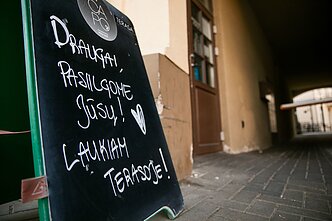 CA
PO
TERASA
DRAUGAI,
PASIILGOME
JŪSŲ!
LAUKIAM
TERASOJE!